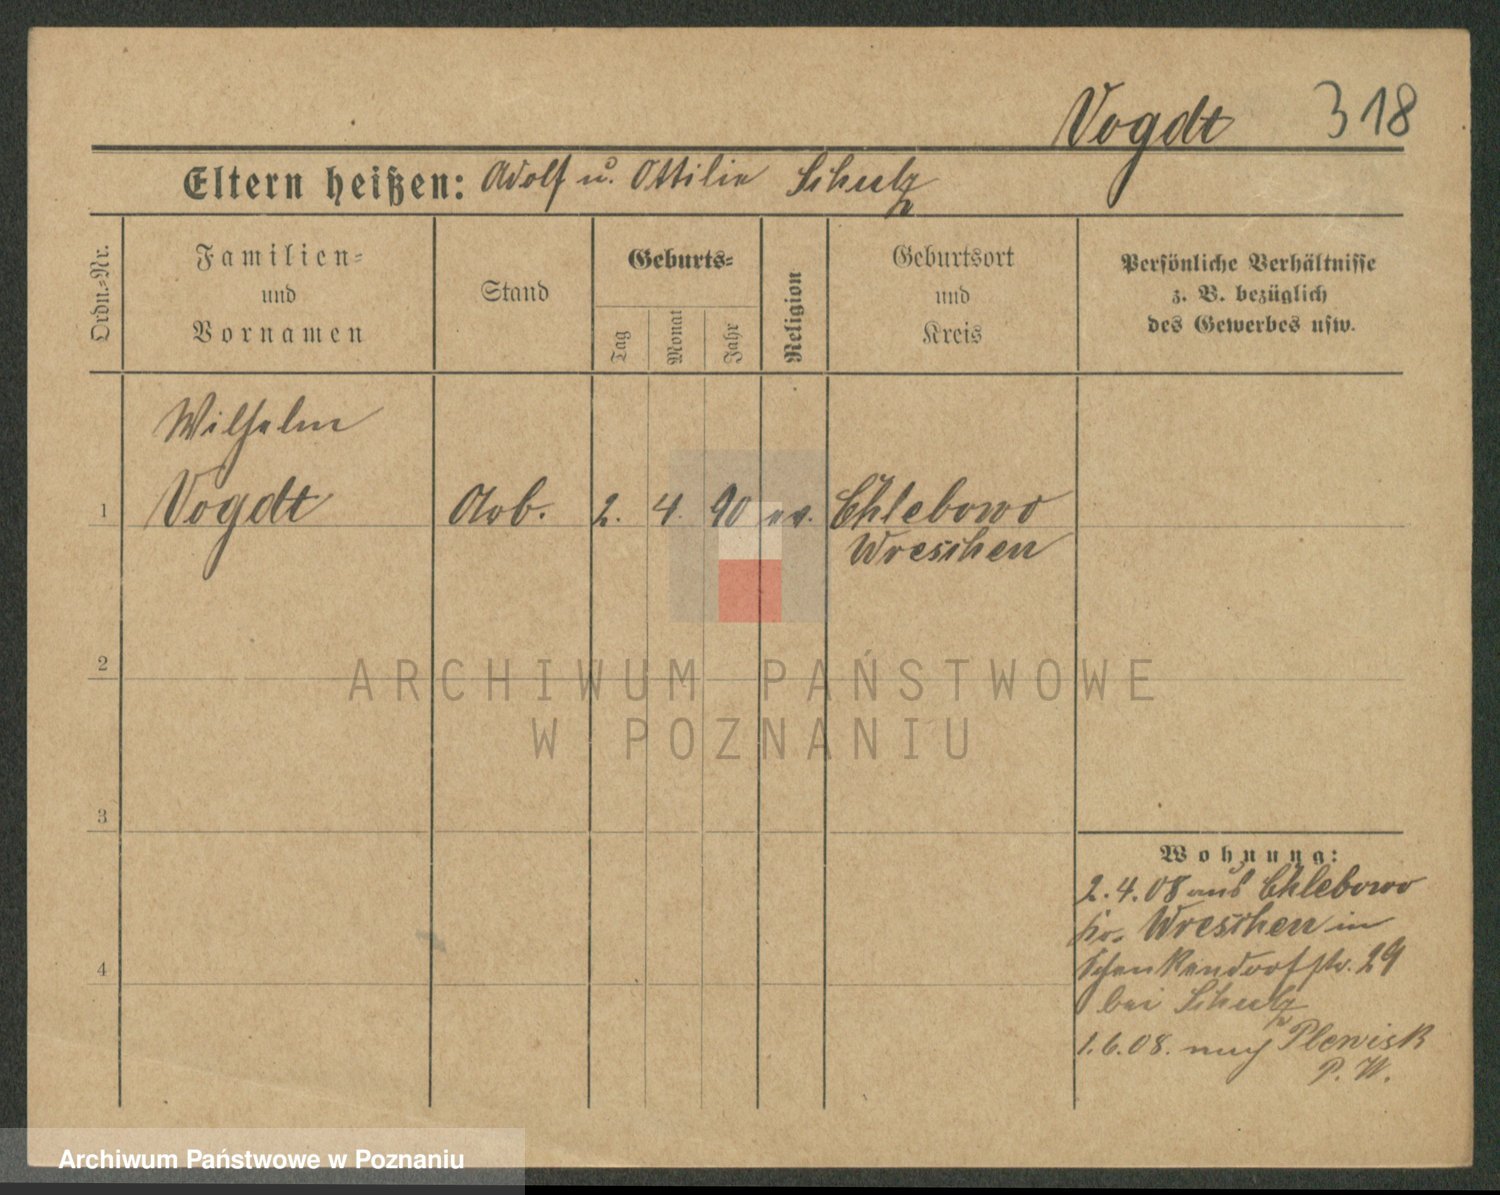 Vogdt 318
Eltern heißen: Adolf u. Ottilie Schulz
Ordn.-Nr.
Familien-
und
Vornamen
Stand
Geburts-
Tag
Monat
Jahr
Religion
Geburtsort
und
Kreis
Persönliche Verhältnisse
z. B. bezüglich
des Gewerbes usw.
Wilhelm
1 Vogdt Arb. 2. 4. 90 ev. Chlebowo
Wreschen
2
3
4
Wohnung:
2.4.08 aus Chlebowo
Kr. Wreschen in
Schenkendorfstr. 29
bei Schulz
1.6.08. nach Plewisk
P. W.
ARCHIWUM PAŃSTWOWE
W POZNANIU
Archiwum Państwowe w Poznaniu